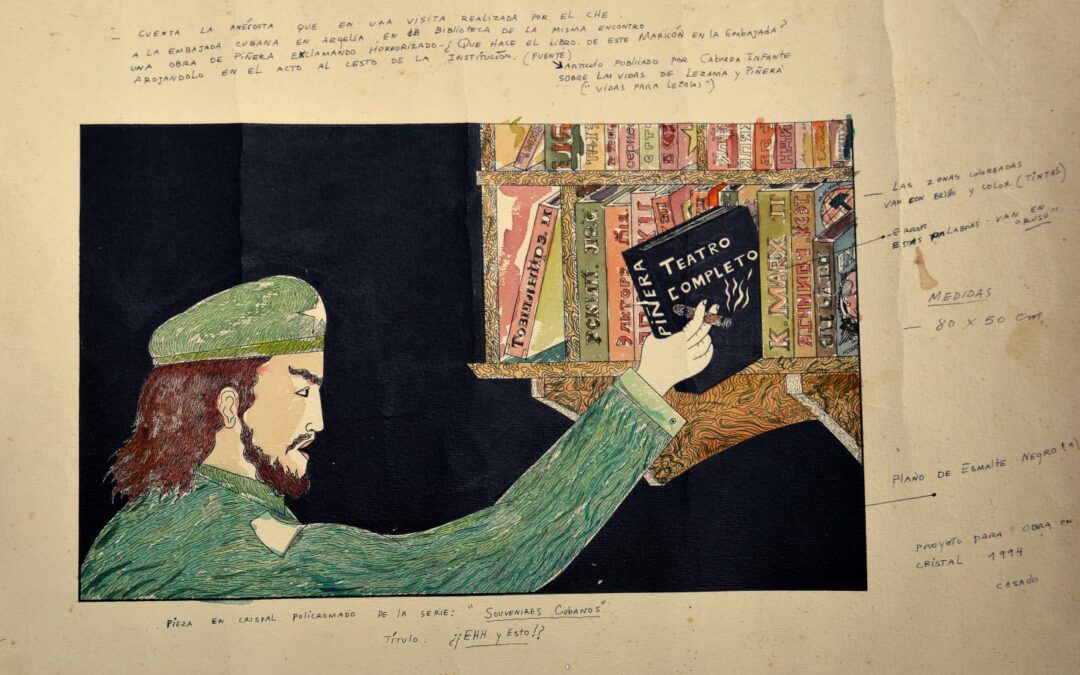 – Cuenta la anécdota que en una visita realizada por el Che
a la embajada cubana en Argelia, en la biblioteca de la misma encontro
una obra de Piñera exclamando horrorizado–¿Que hace el libro de este maricón en la embajada?
arojandolo en el acto al cesto de la institución: (fuente)
articulo publicado por Cabrera Infante
sobre las vidas de Lezama y Piñera
("Vidas para leerlas")
– Las zonas coloreadas
van con brillo y color (tintas)
– error
estas palabras van en
"ruso"
Medidas
– 80 x 50 cm
Plano de esmalte negro
Proyecto para obra en
cristal 1994
Casado
PIÑERA
TEATRO
COMPLETO
K. MARX II
Pieza en cristal policromado de la serie: "Souvenires Cubanos"
Título: ¿¡Ehh y esto!?